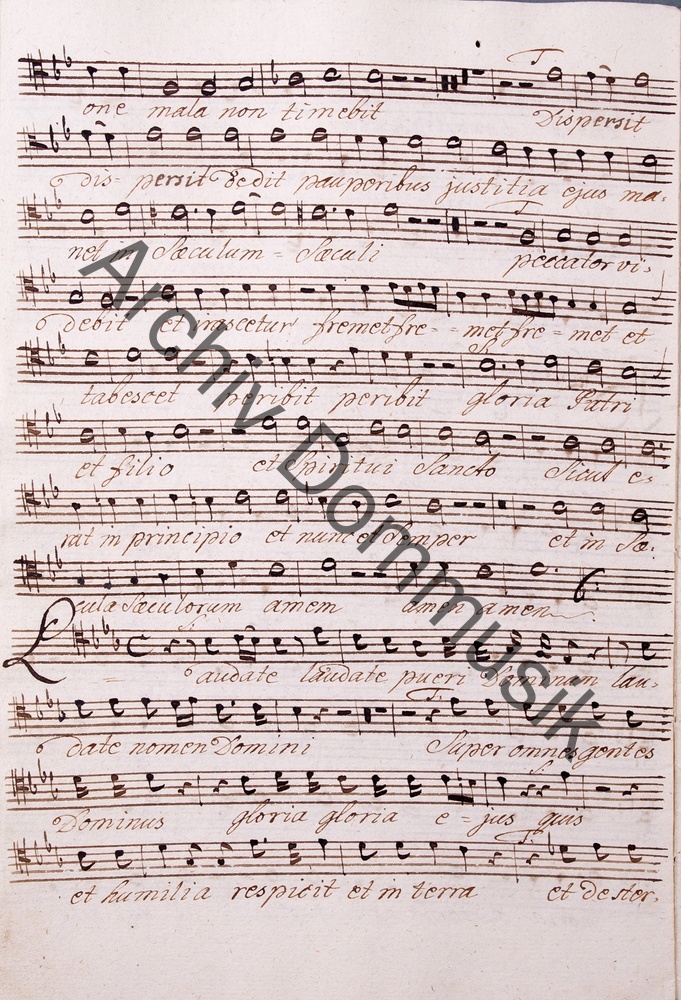 one mala non timebit Dispersit
dis- persit dedit pauperibus justitia ejus ma-
net in Sæculum = Sæculi peccator vi-
debit et irascetur fremet fre - - met fre = met et
tabescet peribit peribit gloria Patri
et filio et Spiritui Sancto Sicut e-
rat in principio et nunc et Semper et in Sæ-
cula Sæculorum amem amen amen
Laudate laudate pueri Dominum lau-
date nomen Domini Super omnes gentes
Dominus gloria gloria e = jus quis
et humilia respicit et in terra et de ster-
Archiv Dommusik